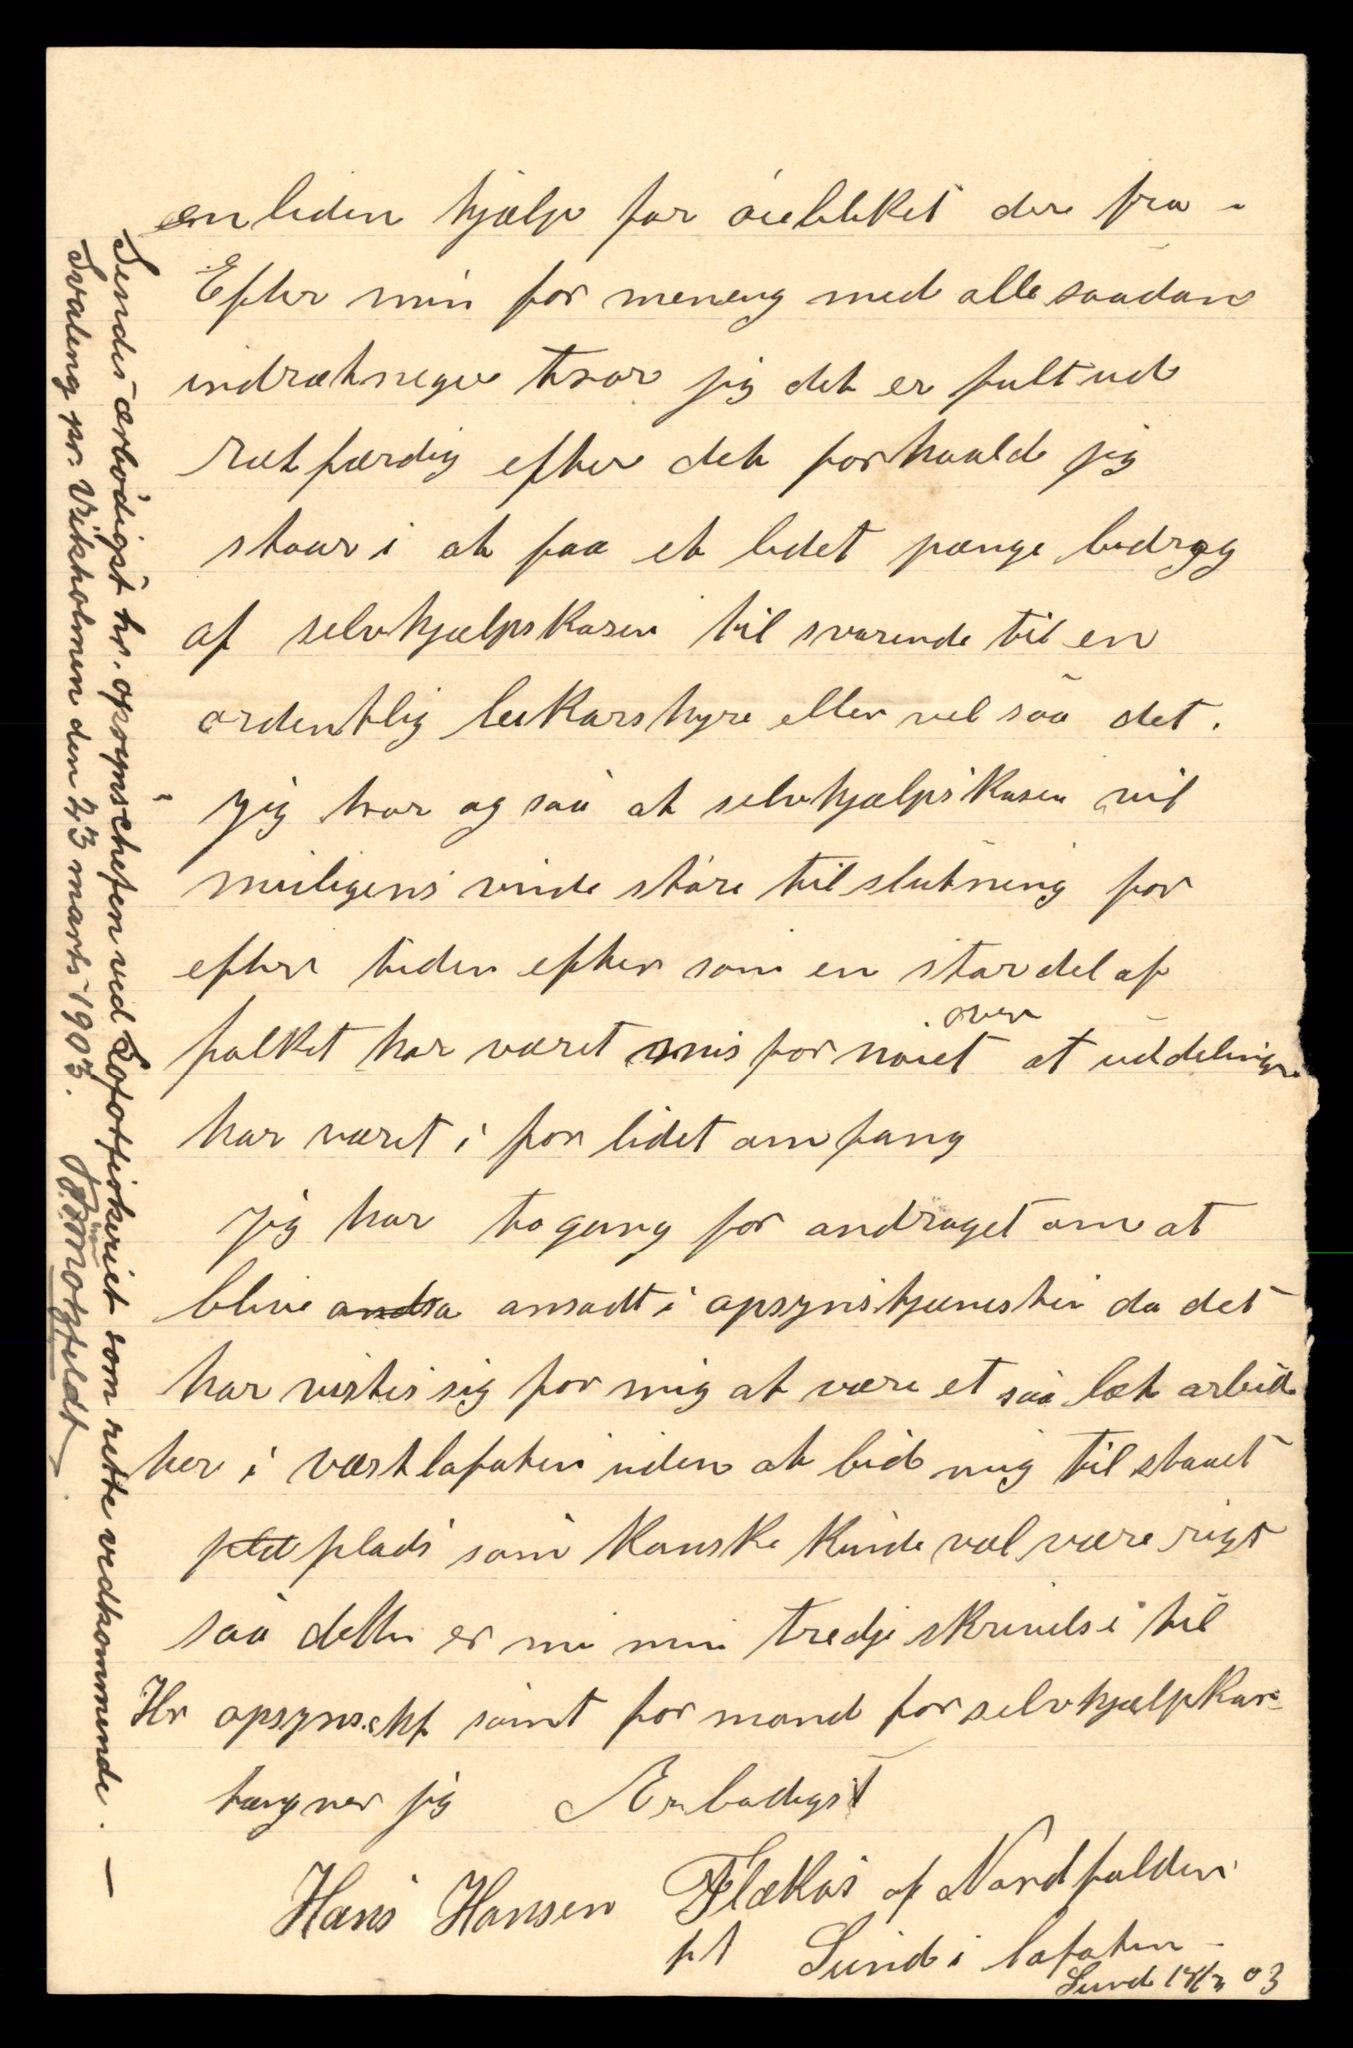 en liden hjælp for øiebliket der fra -
Efter min for mening med alle saadan
indrætneger tror jig det er fult ud
rætfærdig efter det forhaald jig
staar i at faa et lidet pænge bidrag
af selvhjælpskasen til svarende til en
ordentlig leikarshyre eller vel saa det.
jig tror og saa at selvhjælpskasen vil
muligens vinde støre tilslutning for
efter tiden efter som en stor del af
folket har været misfornøiet over at uddelingen
har været i for lidet omfang
jig har to gang for andraget om at
blive andsa ansadt i opsynstjenesten da det
har vistes sig for mig at være et saa læt arbeid
her i væstlofoten uden at bid mig til staaet
pld plads som kanske kunde vel være rigt
saa dette er nu min tredje skrivelse til
Hr opsynschf samt formand for selvhjælpkas-
tægner jig Ærbødigst
Hans Hansen Flækøs af Nordfolden
pt Sund i lofoten -
Sund 18/3 03
Sendes ærbødigst hr. opsynschefen ved Lofotfiskeriet som rette vedkommende. —
Svaleng pr. Vikholmen den 23 marts 1903.
Motzfeldt